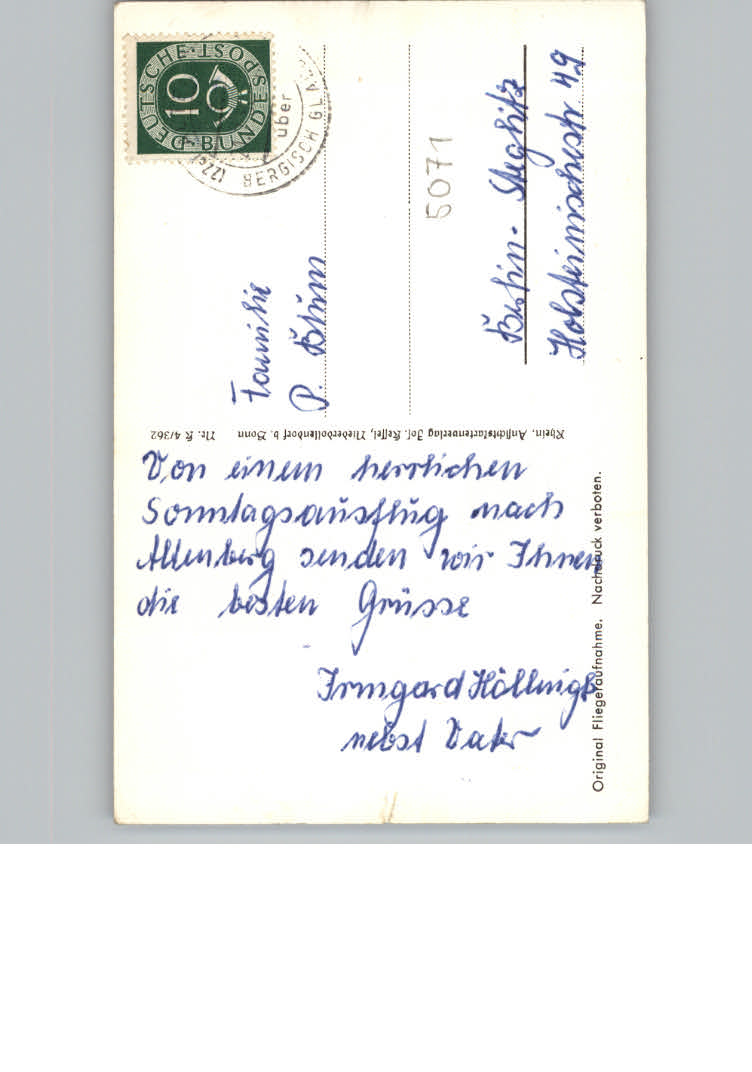 Von einem herrlichen
Sonntagsausflug nach
Altenberg senden wir Ihnen
die besten Grüsse
Irmgard
nebst Vater
Familie
P. Blum
Berlin-Steglitz
Holsteinischestr 49
5071
DEUTSCHE BUNDESPOST
10
(22c) BERGISCH GLA
über
Rhein. Ansichtskartenverlag Jos. Kessel, Niederdollendorf b. Bonn Nr. K 4/362
Original Fliegeraufnahme. Nachdruck verboten.